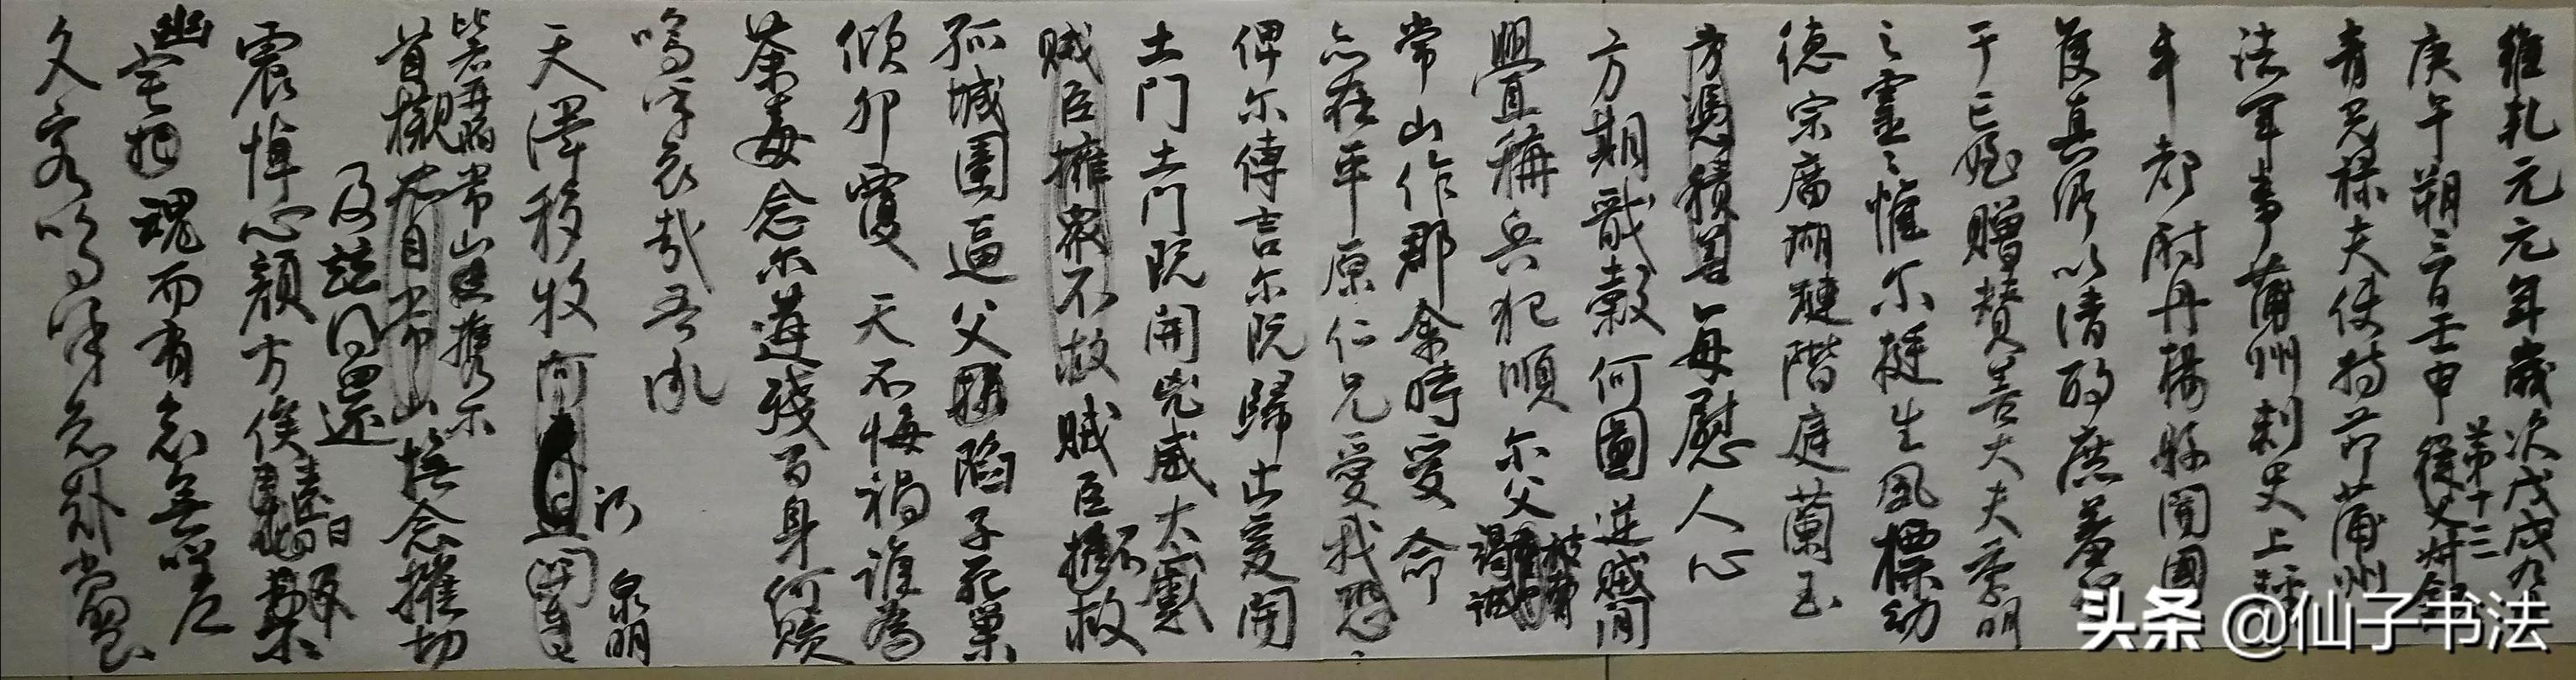 維乾元元年歲次戊戌九月
庚午朔三日壬申第十三從父銀青
青光祿夫使持節蒲州
諸軍事蒲州刺史上輕
車都尉丹楊縣開國
侯真卿以清酌庶羞祭
于亡姪贈贊善大夫季明
之靈惟爾挺生夙標幼
德宗廟瑚璉階庭蘭玉
方憑積善每慰人心
方期戩穀何圖逆賊閒
釁稱兵犯順爾父竭誠
常山作郡余時受命
亦在平原仁兄愛我恐
俾爾傳言爾既歸止爰開
土門土門既開兇威大蹙
賊臣擁眾不救賊臣擁不救
孤城圍逼父陷子死巢
傾卵覆天不悔禍誰為
荼毒念爾遘殘百身何贖
嗚乎哀哉吾承
天澤移牧河關河關泉明
比者再陷常山攜爾
首櫬及茲同還撫念摧切
震悼心顏方俟遠日
幽宅魂而有知無嗟
久客嗚呼哀哉尚饗
头条 @仙子书法